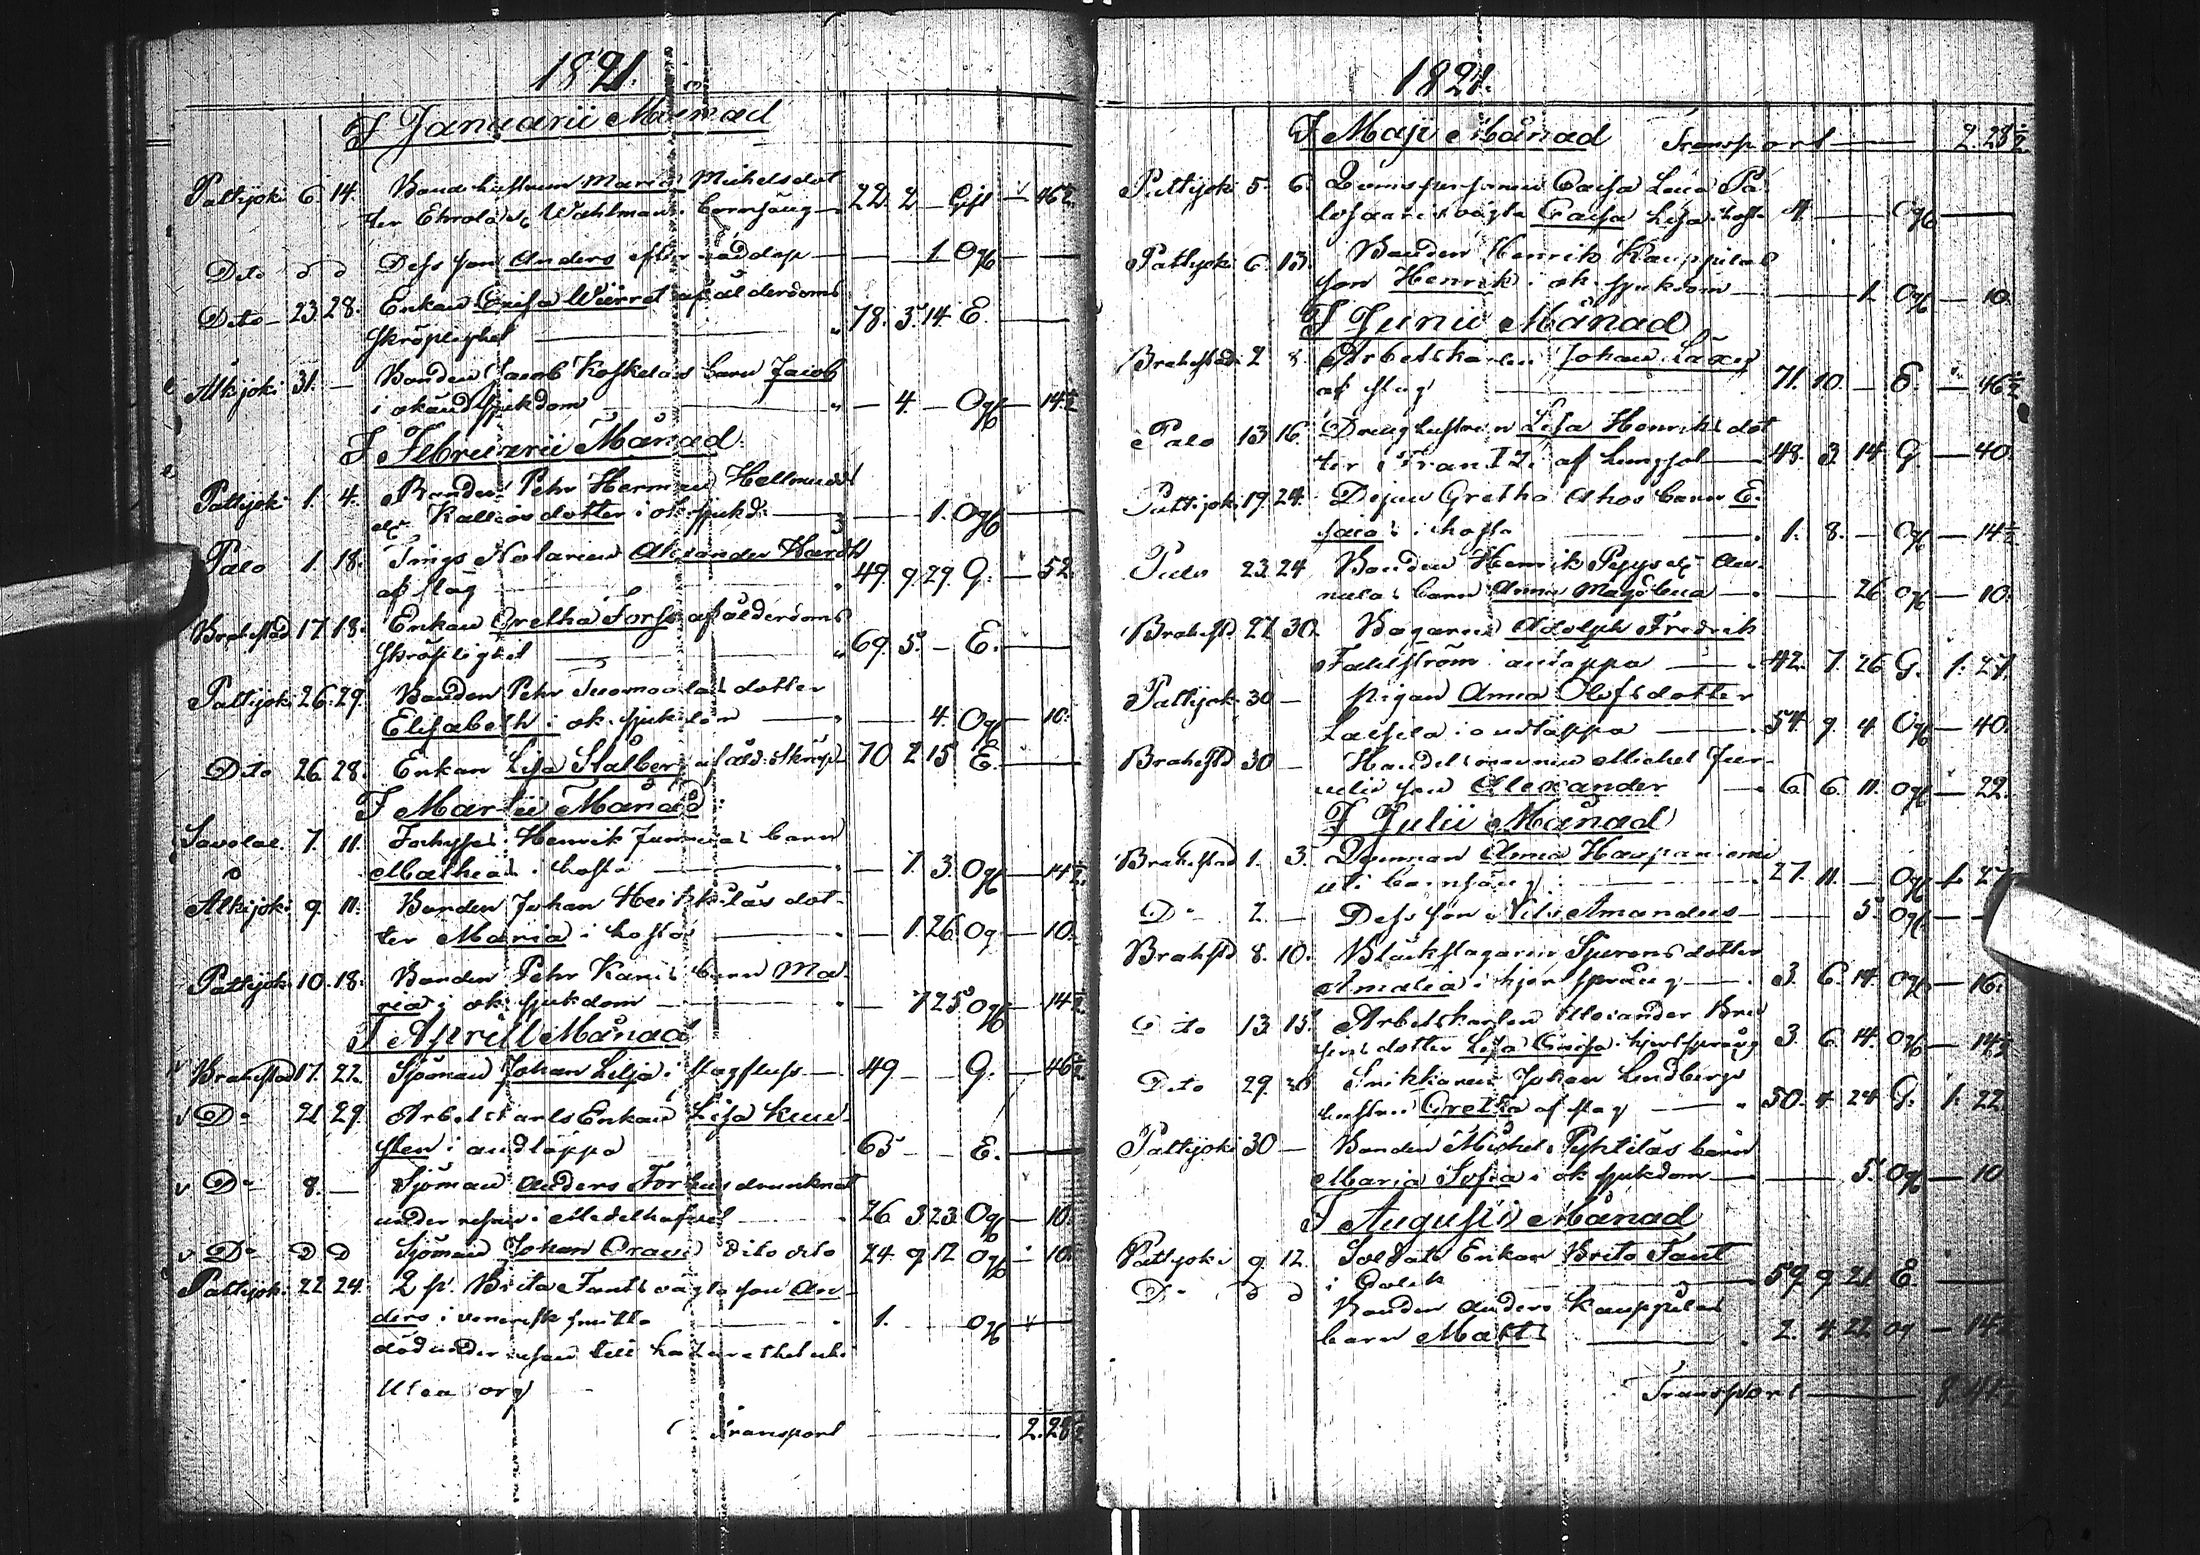 1821.
I Januarii Månad
Pattijoki 6. 14. Bondehustrun Maria Michelsdot
ter Ehrola v. Wahlman. barnsäng 22. 2 — Gift — 46½
Dito d d Dess son Anders efter — — 1 Ogf — —
Dito 23. 28. Enkan Caisa Wierret af ålderdoms
skröplighet — 78. 3. 14. E. —
Alkijoki 31. — Bonden Jacob Koskelas barn Jacob
i okänd sjukdom — 4. — Ogf — 14½
I Februarii Månad.
Pattijoki 1. 4. Bonden Pehr Herman Hellmans
el. Kallios dotter i ok. sjukd. — — 1. Ogf —
Palo 1. 18. Tings Notarien Alexander
af slag — 49. 9. 29. G. — 52.
Brahestad 17. 18. Enkan Gretha Forss af ålderdoms
skröplighet — 69. 5. — E. —
Pattijoki 26. 29. Bonden Pehr Tuomaalas dotter
Elisabeth i ok. sjukdom — — 4. Ogf — 10.
Dito 26. 28. Enkan Lisa Stålberg af åld. skröp. 70 2 15 E. —
I Martii Månad
Savolax 7. 11. Henrik barn
Mathias i hosta — 7. 3. Ogf — 14½
Alkijoki 9. 11. Bonden Johan Heikkiläs dot
ter Maria i hosta — — 1. 26. Og — 10.
Pattijoki 10. 18. Bonden Pehr Karis barn Ma
ria i ok. sjukdom — — 7 25 Ogf — 14½
I Aprill Månad
Brahestad 17. 22. Sjöman Johan Lilja i slagfluss — 49 — — G. — 46½
D:o 21 29. Arbetskarls Enkan Lisa
sten i andtäppa 65 — — E. —
D:o 8. — Sjöman Anders Forss drunknat
under resan i Medelhafvet — 26 3 23. Ogf — 10.
D:o D D Sjöman Johan dito dito 24. 9. 12 Ogf — 10.
Pattijoki 22 24. Brita Fants oägta son An
ders i venerisk smitta — 1. — — Ogf
död under resan till Lazarethet uti
Uleåborg
Transport — 2. 28½
1821.
I Maji Månad Transport — 2. 28½
Pattijoki 5. 6. Caisa Lena Pa
losaaris oägta Caisa Lisa i hosta 4. — — Ogf —
Pattijoki 6. 13. Bonden Henrik Kauppilas
son Henrik i ok. sjukdom — — 1. Ogf — 10.
I Junii Månad
Brahestad 2 8. Arbetskarlen Johan Lång
af slag 71. 10. — E. — 46½
Palo 13 16. Drenghustrun Lisa Henriksdot
ter Frantzi af lungsot — 48. 3. 14. G. — 40.
Pattijoki 19. 24. Pigan Gretha Ahos barn E
saias i hosta — 1. 8. — Ogf — 14½
Palo 23. 24 Bonden Henrik el. An
nalas barn Anna Magdalena — — 26 Ogf — 10.
Brahestd 27. 30. Bagaren Adolph Fredrik
Fahlström i andtäppa — 42. 7. 26 G. 1. 27.
Pattijoki 30 — Pigan Anna Olofsdotter
Lassila i andtäppa — 54. 9. 4. Ogf — 40.
Brahestd 30 — Handelsmannen Michel
son Alexander — 6. 6. 11. Ogf — 22.
I Julii Månad
Brahestad 1. 3. Anna
uti barnsäng — 27. 11. — Ogf 1. 27
D:o 2. — Dess son Nils Amandus — — — 5. Ogf —
Brahestd 8. 10. Bläckslagaren dotter
Amalia i hjertsprång — 3. 6. 14. Ogf — 16.
Dito 13. 15. Arbetskarlen Alexander
dotter Lisa Caisa i hjertsprång 3. 6. 14. Ogf — 14½
Dito 29. Snikkaren Johan Lindbergs
hustru Gretha af slag — 50. 4 24 G. 1. 22.
Pattijoki 30 — Bonden Michel Pyhtiläs barn
Maria Sofia i ok. sjukdom — — — 5. Ogf — 10
I Augusti Månad
Pattijoki 9. 12. Soldats Enkan Brita Fant
i Colik — 59 9. 21. E. —
D:o d d Bonden Anders Kauppilas
barn Matts — 2. 4. 22 Og — 14½
Transport —